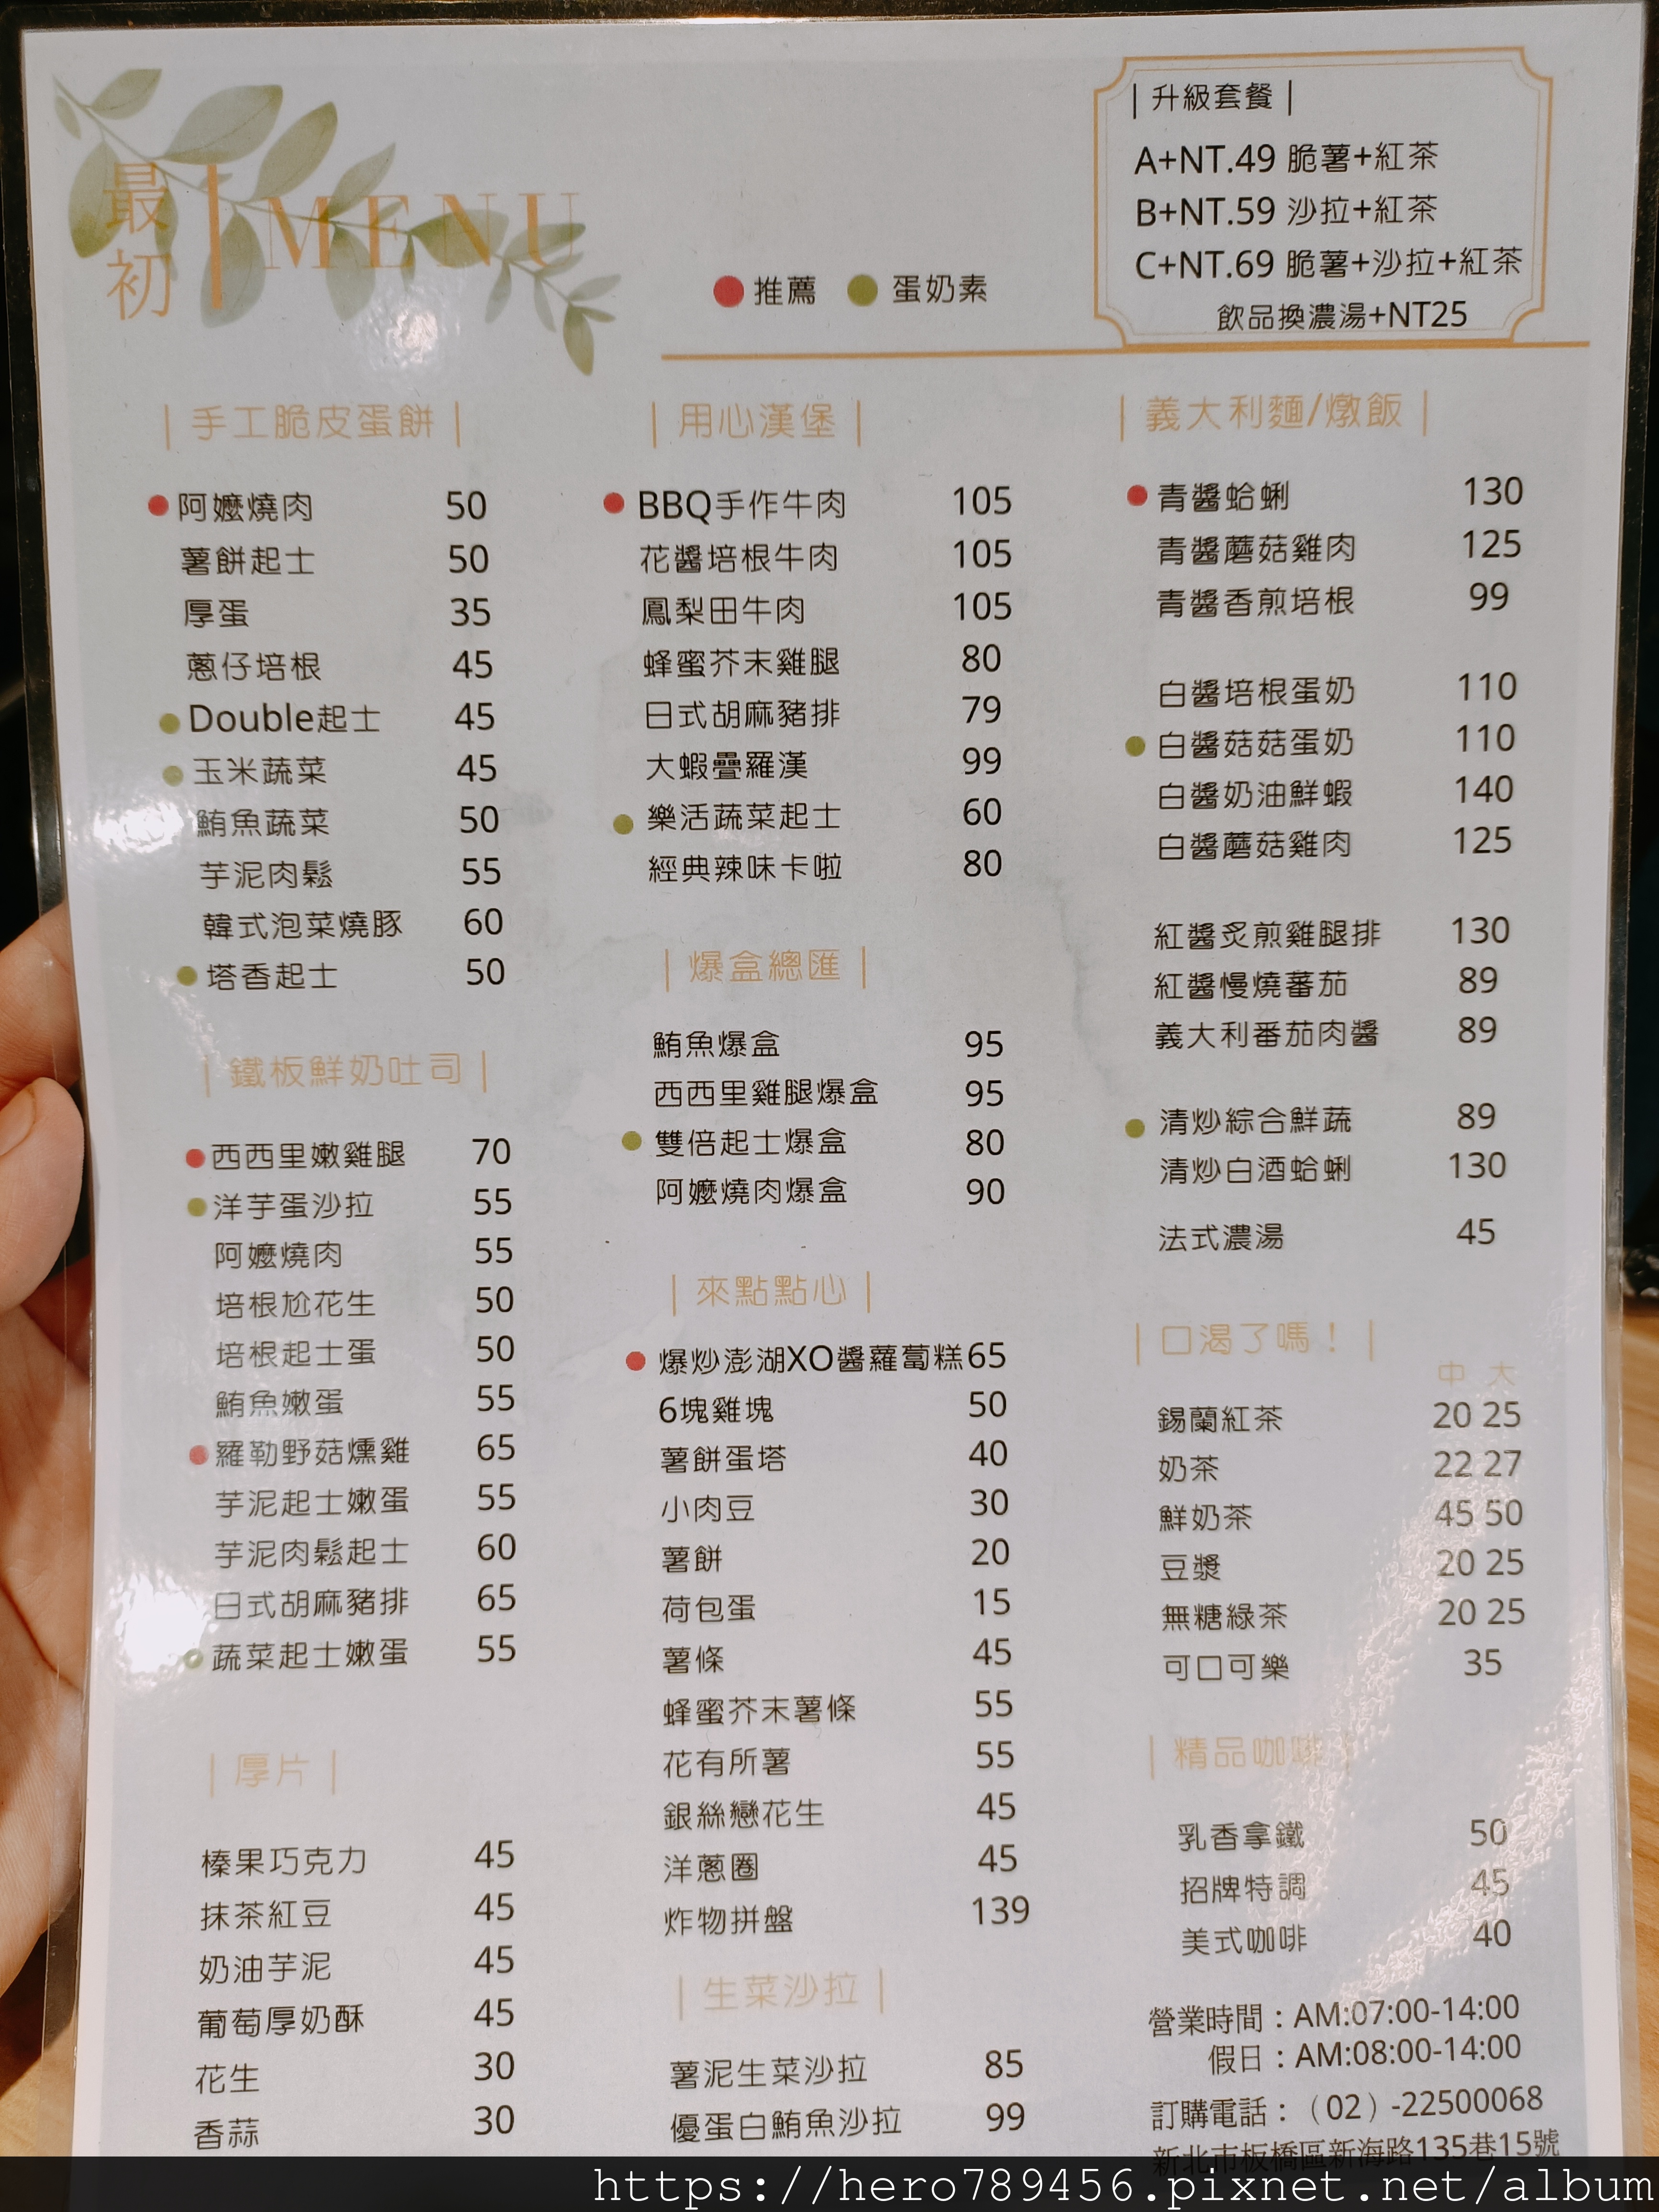 最初 | MENU
● 推薦 ● 蛋奶素
| 升級套餐 |
A+NT.49 脆薯+紅茶
B+NT.59 沙拉+紅茶
C+NT.69 脆薯+沙拉+紅茶
飲品換濃湯+NT25
| 手工脆皮蛋餅 |
● 阿嬤燒肉 50
薯餅起士 50
厚蛋 35
蔥仔培根 45
● Double起士 45
● 玉米蔬菜 45
鮪魚蔬菜 50
芋泥肉鬆 55
韓式泡菜燒豚 60
● 塔香起士 50
| 鐵板鮮奶吐司 |
● 西西里嫩雞腿 70
● 洋芋蛋沙拉 55
阿嬤燒肉 55
培根尬花生 50
培根起士蛋 50
鮪魚嫩蛋 55
● 羅勒野菇燻雞 65
芋泥起士嫩蛋 55
芋泥肉鬆起士 60
日式胡麻豬排 65
● 蔬菜起士嫩蛋 55
| 厚片 |
榛果巧克力 45
抹茶紅豆 45
奶油芋泥 45
葡萄厚奶酥 45
花生 30
香蒜 30
| 用心漢堡 |
● BBQ手作牛肉 105
花醬培根牛肉 105
鳳梨田牛肉 105
蜂蜜芥末雞腿 80
日式胡麻豬排 79
大蝦疊羅漢 99
● 樂活蔬菜起士 60
經典辣味卡啦 80
| 爆盒總匯 |
鮪魚爆盒 95
西西里雞腿爆盒 95
● 雙倍起士爆盒 80
阿嬤燒肉爆盒 90
| 來點點心 |
● 爆炒澎湖XO醬蘿蔔糕65
6塊雞塊 50
薯餅蛋塔 40
小肉豆 30
薯餅 20
荷包蛋 15
薯條 45
蜂蜜芥末薯條 55
花有所薯 55
銀絲戀花生 45
洋蔥圈 45
炸物拼盤 139
| 生菜沙拉 |
薯泥生菜沙拉 85
優蛋白鮪魚沙拉 99
| 義大利麵/燉飯 |
● 青醬蛤蜊 130
青醬蘑菇雞肉 125
青醬香煎培根 99
白醬培根蛋奶 110
● 白醬菇菇蛋奶 110
白醬奶油鮮蝦 140
白醬蘑菇雞肉 125
紅醬炙煎雞腿排 130
紅醬慢燒蕃茄 89
義大利番茄肉醬 89
● 清炒綜合鮮蔬 89
清炒白酒蛤蜊 130
法式濃湯 45
| 口渴了嗎！ |
中 大
錫蘭紅茶 20 25
奶茶 22 27
鮮奶茶 45 50
豆漿 20 25
無糖綠茶 20 25
可口可樂 35
| 精品咖啡 |
乳香拿鐵 50
招牌特調 45
美式咖啡 40
營業時間：AM:07:00-14:00
假日：AM:08:00-14:00
訂購電話：（02）-22500068
新北市板橋區新海路135巷15號
https://hero789456.pixnet.net/album